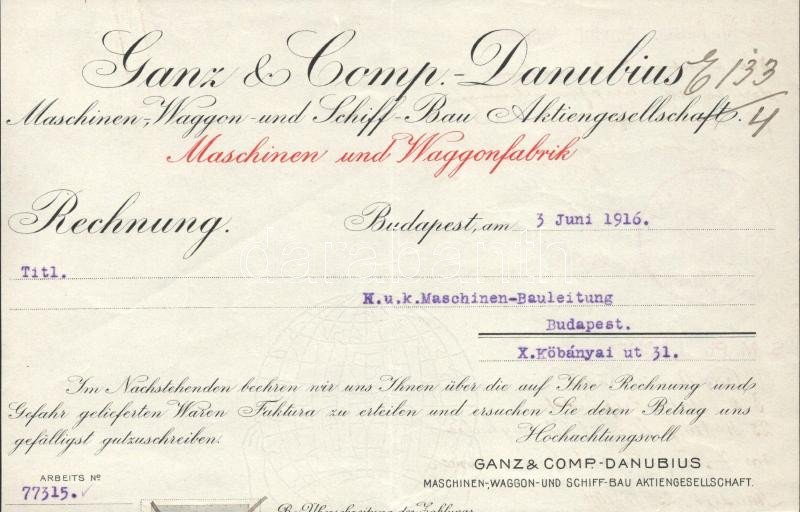 Ganz & Comp.-Danubius
E 133/4
Maschinen-, Waggon- und Schiff-Bau Aktiengesellschaft.
Maschinen und Waggonfabrik
Rechnung.
Budapest, am 3 Juni 1916.
Titl.
K.u.k.Maschinen-Bauleitung
Budapest.
X.Köbányai ut 31.
Im Nachstehenden beehren wir uns Ihnen über die auf Ihre Rechnung und
Gefahr gelieferten Waren Faktura zu erteilen und ersuchen Sie deren Betrag uns
gefälligst gutzuschreiben.
Hochachtungsvoll
GANZ & COMP.-DANUBIUS
MASCHINEN-, WAGGON- UND SCHIFF-BAU AKTIENGESELLSCHAFT.
ARBEITS No
77315.